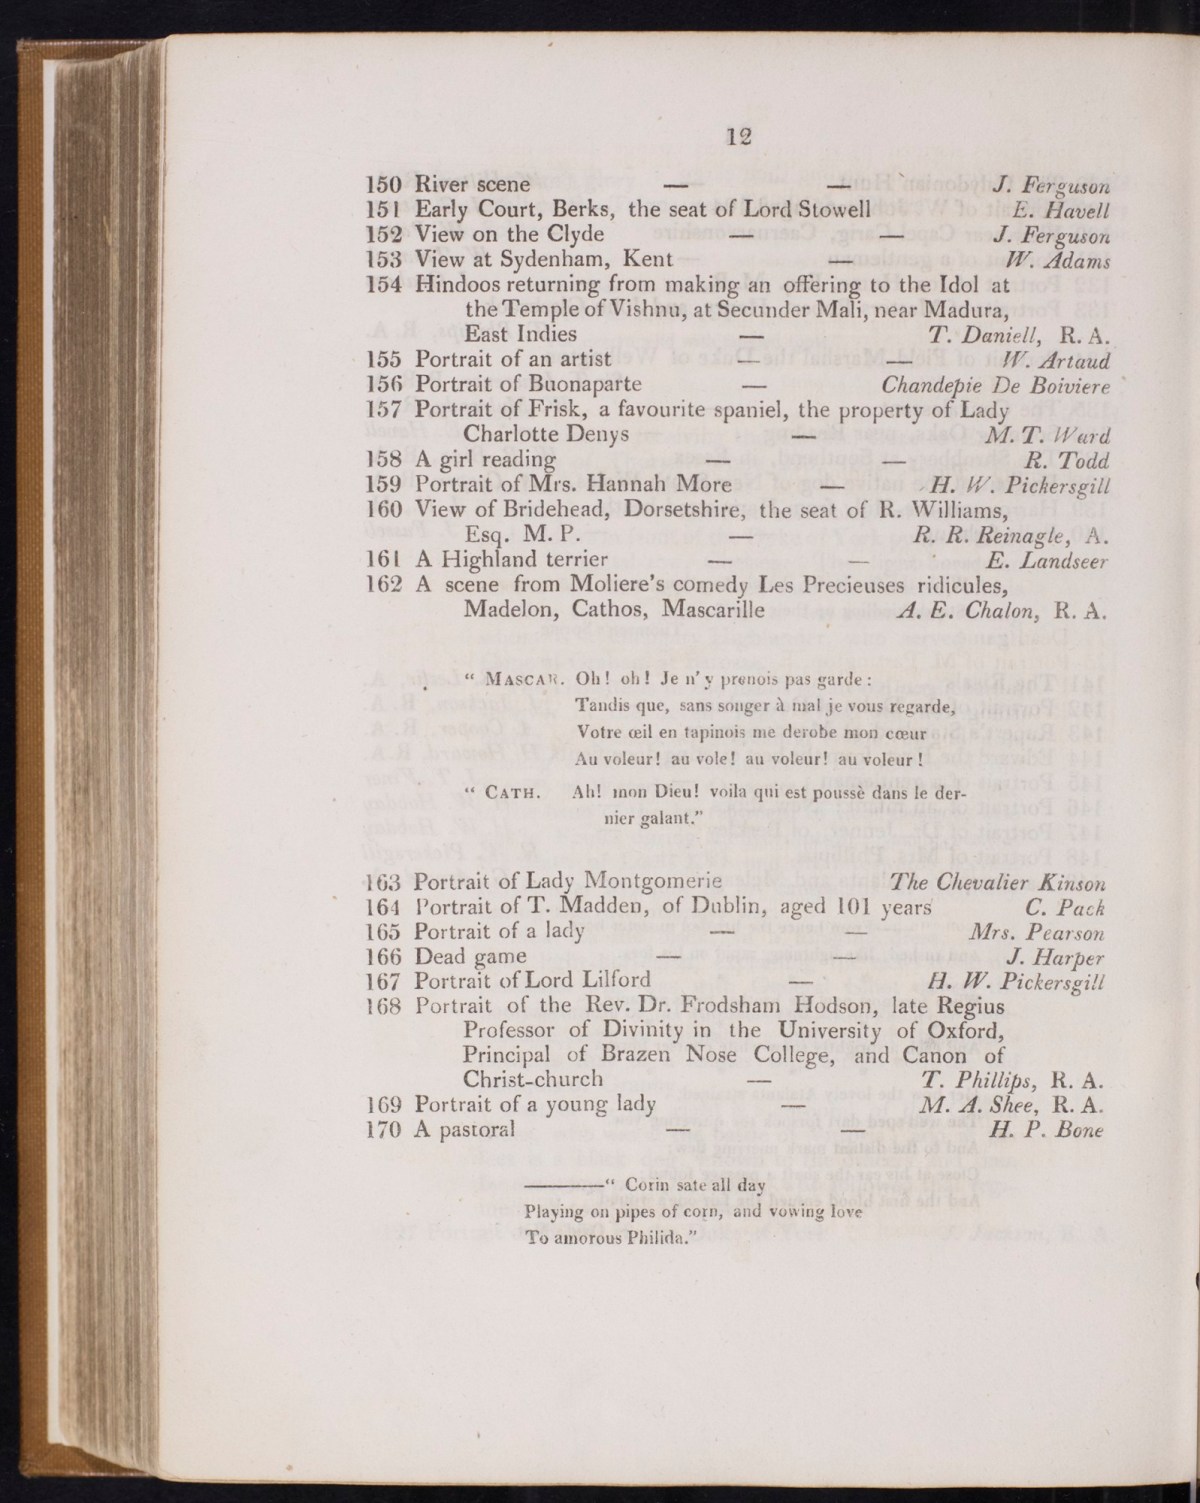 12
150 River scene — — J. Ferguson
151 Early Court, Berks, the seat of Lord Stowell E. Havell
152 View on the Clyde — — J. Ferguson
153 View at Sydenham, Kent — W. Adams
154 Hindoos returning from making an offering to the Idol at
the Temple of Vishnu, at Secunder Mali, near Madura,
East Indies — T. Daniell, R. A.
155 Portrait of an artist — — W. Artaud
156 Portrait of Buonaparte — Chandepie De Boiviere
157 Portrait of Frisk, a favourite spaniel, the property of Lady
Charlotte Denys — M. T. Ward
158 A girl reading — — R. Todd
159 Portrait of Mrs. Hannah More — H. W. Pickersgill
160 View of Bridehead, Dorsetshire, the seat of R. Williams,
Esq. M. P. — R. R. Reinagle, A.
161 A Highland terrier — — E. Landseer
162 A scene from Moliere's comedy Les Precieuses ridicules,
Madelon, Cathos, Mascarille A. E. Chalon, R. A.
“ MASCAR. Oh! oh! Je n'y prenois pas garde:
Tandis que, sans songer à mal je vous regarde,
Votre œil en tapinois me derobe mon cœur
Au voleur! au vole! au voleur! au voleur!
“ CATH. Ah! mon Dieu! voila qui est poussè dans le der-
nier galant.”
163 Portrait of Lady Montgomerie The Chevalier Kinson
164 Portrait of T. Madden, of Dublin, aged 101 years C. Pack
165 Portrait of a lady — — Mrs. Pearson
166 Dead game — — J. Harper
167 Portrait of Lord Lilford — H. W. Pickersgill
168 Portrait of the Rev. Dr. Frodsham Hodson, late Regius
Professor of Divinity in the University of Oxford,
Principal of Brazen Nose College, and Canon of
Christ-church — T. Phillips, R. A.
169 Portrait of a young lady — M. A. Shee, R. A.
170 A pastoral — — H. P. Bone
———“ Corin sate all day
Playing on pipes of corn, and vowing love
To amorous Philida.”